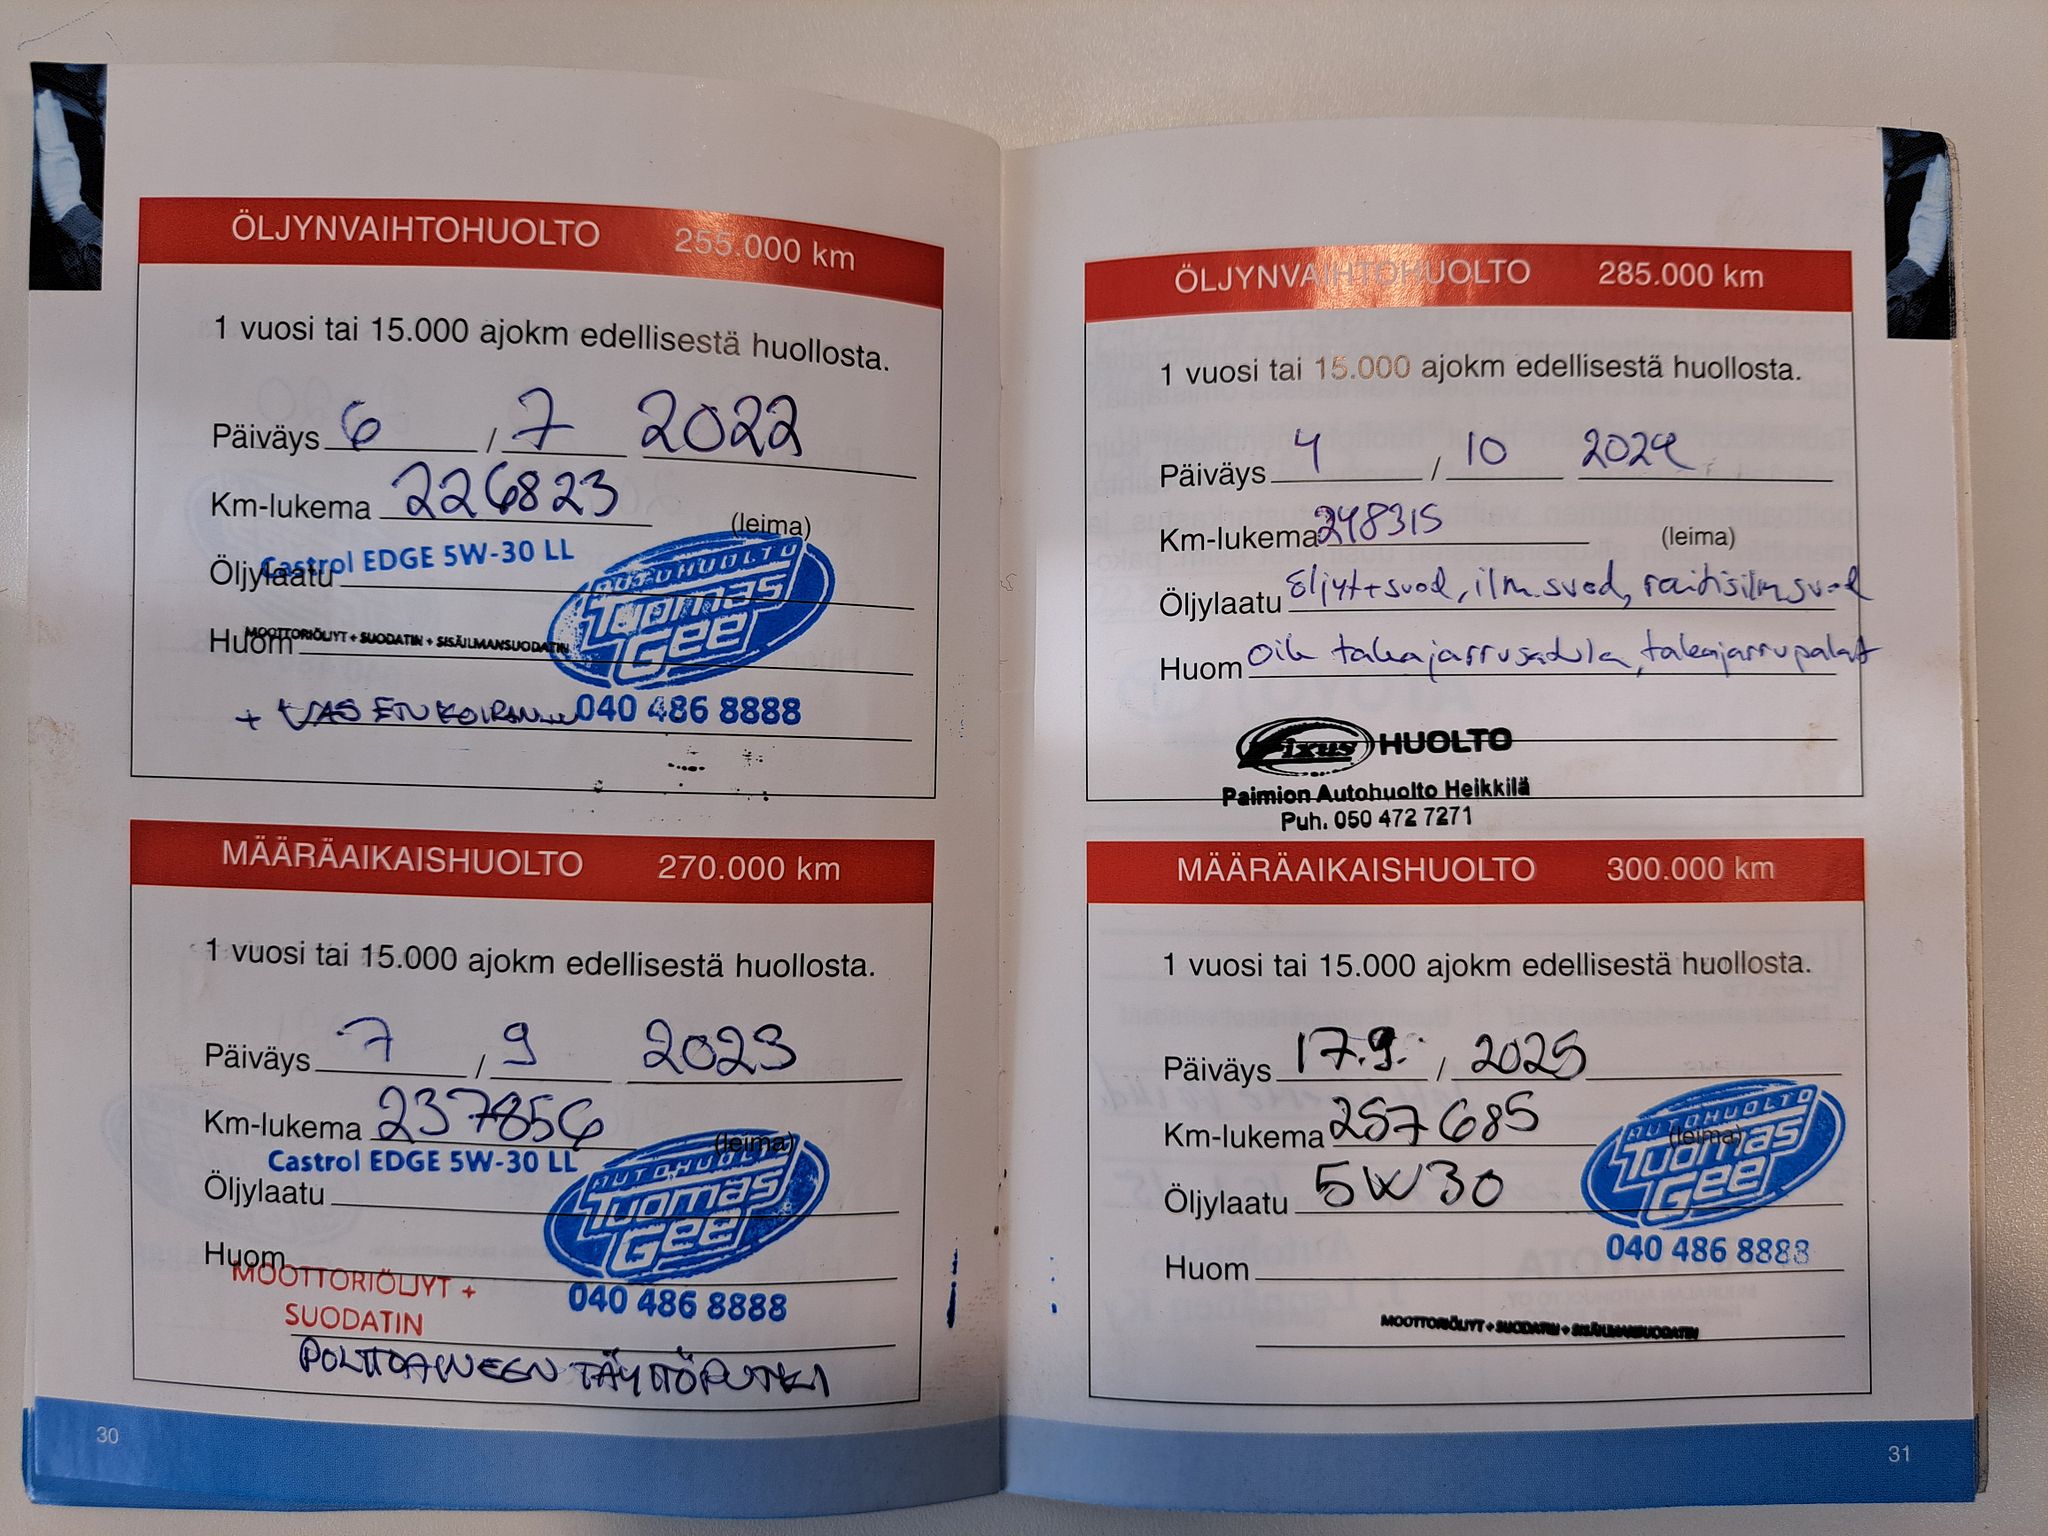 ÖLJYNVAIHTOHUOLTO 255.000 km
1 vuosi tai 15.000 ajokm edellisestä huollosta.
Päiväys 6 / 7 2022
Km-lukema 226823
(leima)
Castrol EDGE 5W-30 LL
Öljylaatu
AUTOHUOLTO
Tuomas
Gee
Huom MOOTTORIÖLJYT + SUODATIN + SISÄILMANSUODATIN
+ VASEN
040 486 8888
MÄÄRÄAIKAISHUOLTO 270.000 km
1 vuosi tai 15.000 ajokm edellisestä huollosta.
Päiväys 7 / 9 2023
Km-lukema 237856
(leima)
Castrol EDGE 5W-30 LL
Öljylaatu
AUTOHUOLTO
Tuomas
Gee
040 486 8888
Huom
MOOTTORIÖLJYT +
SUODATIN
POLTTOAINEEN TÄYTTÖPUTKI
30
ÖLJYNVAIHTOHUOLTO 285.000 km
1 vuosi tai 15.000 ajokm edellisestä huollosta.
Päiväys 4 / 10 2024
Km-lukema 248315
(leima)
Öljylaatu öljyt+suod, ilm.suod, raitisilmsuod
Huom oik takajarrusatula, takajarrupalat
Fixus HUOLTO
Paimion Autohuolto Heikkilä
Puh. 050 472 7271
MÄÄRÄAIKAISHUOLTO 300.000 km
1 vuosi tai 15.000 ajokm edellisestä huollosta.
Päiväys 17.9. / 2025
Km-lukema 257685
(leima)
Öljylaatu 5W30
AUTOHUOLTO
Tuomas
Gee
040 486 8888
Huom
MOOTTORIÖLJYT + SUODATIN + SISÄILMANSUODATIN
31